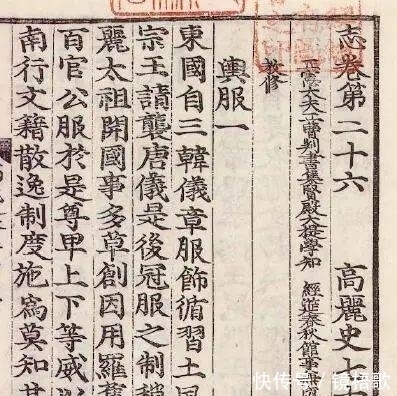 志卷第二十六　高麗史七
正憲大夫工曹判書集賢殿大提學知　經筵春秋館事兼
教修
輿服一
東國自三韓儀章服飾循習土風
宗王請襲唐儀是後冠服之制稍
麗太祖開國事多草創因用羅舊
百官公服於是尊卑上下等威以
南行文籍散逸制度施爲莫知其
快传号 /